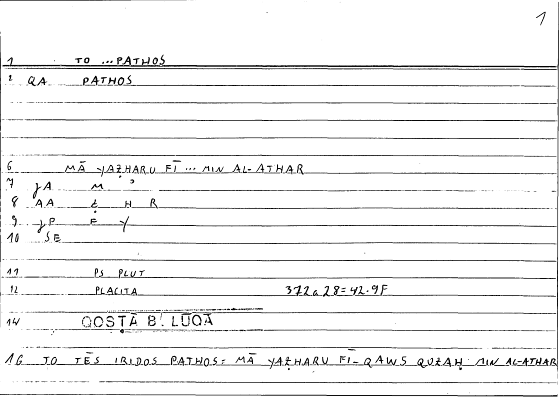 1
1 TO ...PATHOS
2 QA PATHOS
6 MĀ YAẒHARU FĪ ... MIN AL-ATHAR
7 JA M ʾ
8 AA Ẓ H R
9 JP F Y
10 SE
11 PS PLUT
12 PLACITA 372a28=42.9F
14 QOSṬĀ B. LŪQĀ
16 TO TĒS IRIDOS PATHOS= MĀ YAẒHARU FĪ-QAWS QUZAḤ MIN AL-ATHAR